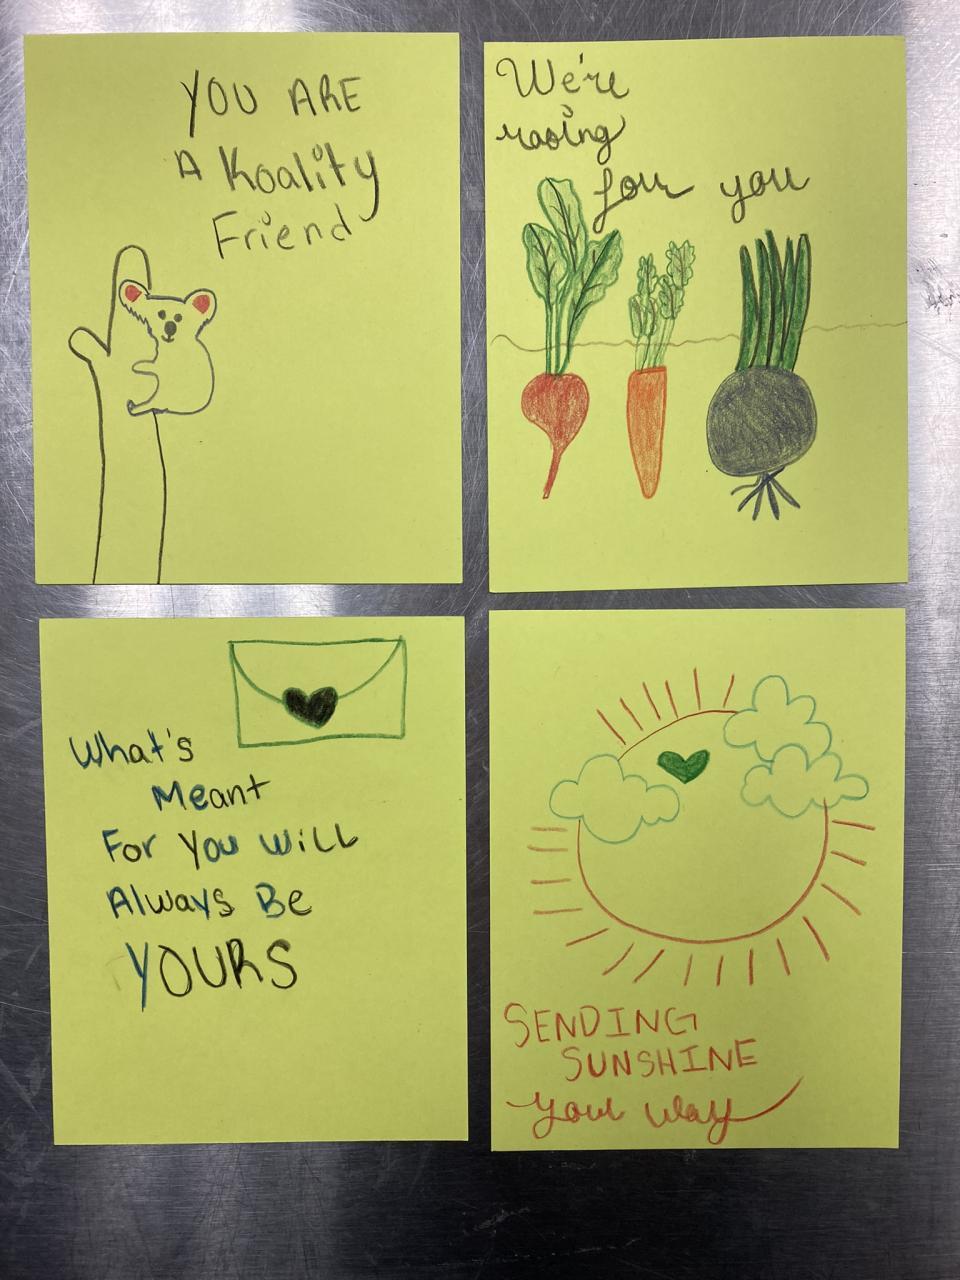 YOU ARE
A Koality
Friend
We're
for you
What's
Meant
For You WiLL
Always Be
YOURS
SENDING
SUNSHINE
your way